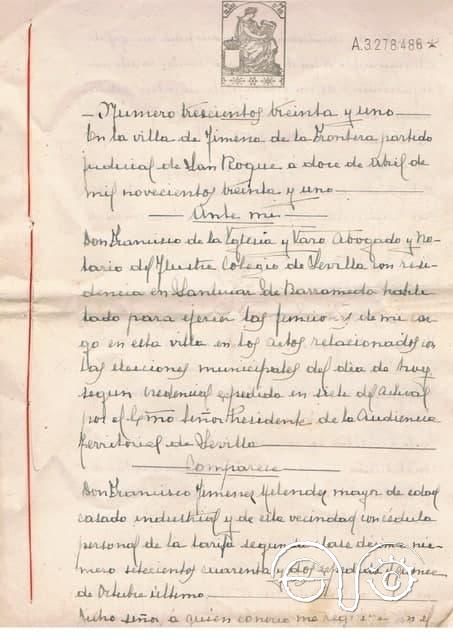 A.3.278.486 *
- Numero trescientos treinta y uno -
En la villa de Jimena de la Frontera partido
judicial de San Roque a doce de Abril de
mil novecientos treinta y uno
Ante mi
Don Francisco de la Yglesia y Varo Abogado y No-
tario del Ilustre Colegio de Sevilla con resi-
dencia en Sanlucar de Barrameda habili-
tado para ejercer las funciones de mi car-
go en esta villa en los actos relacionados con
las elecciones municipales del dia de hoy
segun credencial expedida en siete del actual
por el Exmo Señor Presidente de la Audiencia
Territorial de Sevilla
Comparece
Don Francisco Jimenez mayor de edad
casado industrial y de esta vecindad con cédula
personal de la tarifa segunda clase decima nu-
mero setecientos cuarenta y dos expedida
de Octubre último
Dicho señor a quien conozco me